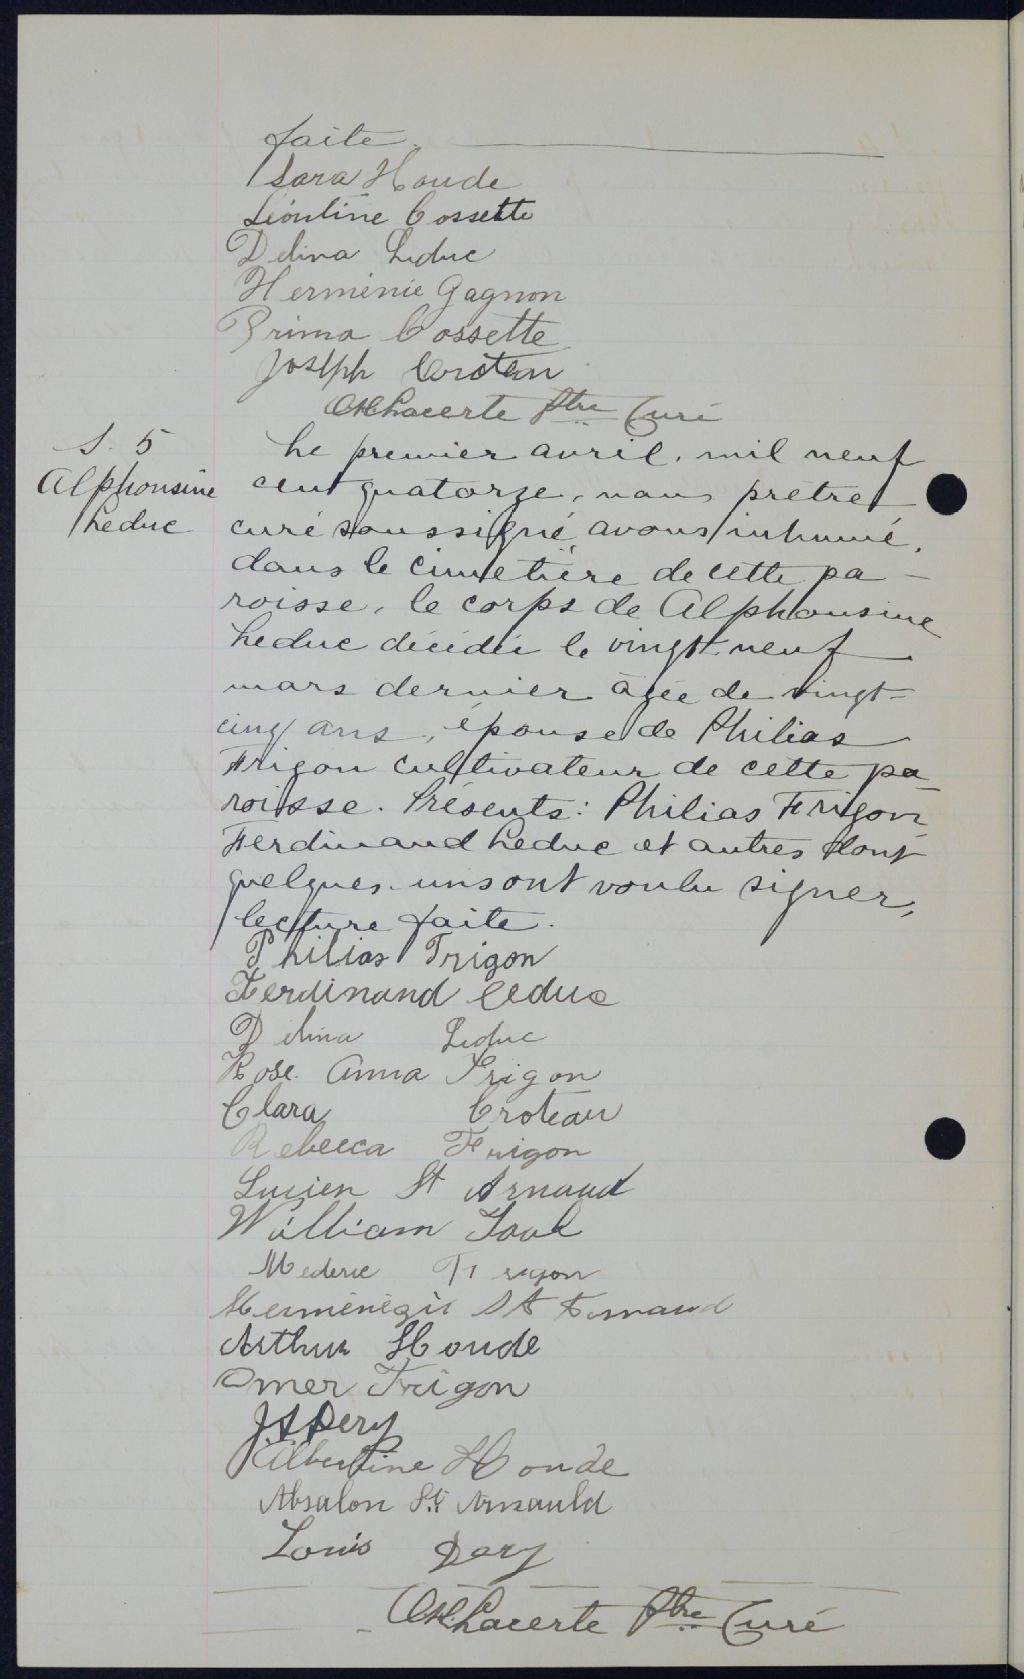 faite.
Sara Houde
Léontine Cossette
Delina Leduc
Herménie Gagnon
Prima Cossette
Joseph Croteau
Lacerte Ptre Curé
S. 5
Alphonsine
Leduc
Le premier avril, mil neuf
cent quatorze, nous prêtre
curé soussigné, avons inhumé,
dans le cimetière de cette pa-
roisse, le corps de Alphonsine
Leduc décédée le vingt-neuf
mars dernier âgée de vingt-
cinq ans, épouse de Philias
Frigon cultivateur de cette pa-
roisse. Présents: Philias Frigon
Ferdinand Leduc et autres dont
quelques-uns ont voulu signer,
lecture faite.
Philias Frigon
Ferdinand Leduc
Delina Leduc
Rose Anna Frigon
Clara Croteau
Rebecca Frigon
Lucien St Arnaud
William
Mederic Frigon
St
Arthur Houde
Omer Frigon
J.A Dery
Albertine Houde
Absalon St. Arnauld
Louis Dery
Lacerte Ptre Curé